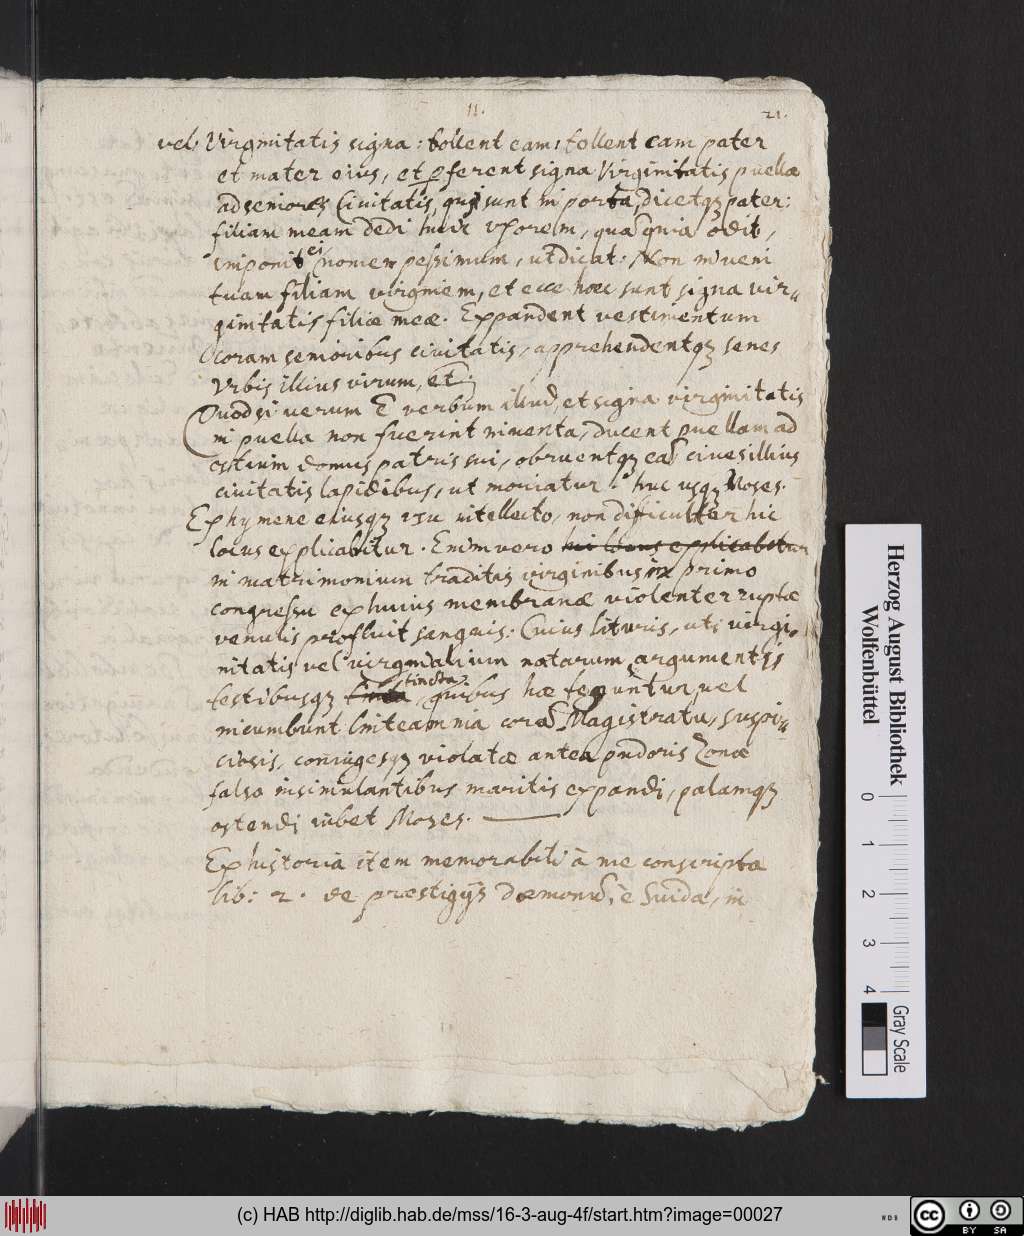 11.
21.
vel: Virginitatis signa: tollent eam, tollent eam pater
et mater eius, et pferent signa Virginitatis puellæ
ad seniores Civitatis, qui sunt in porta, dicetqz pater:
filiam meam dedi huic uxorem, quā quia odit,
imponit ei nomen pessimum, ut dicat: Non inveni
tuam filiam virginem, et ecce hæc sunt signa vir-
ginitatis filiæ meæ. Expandent vestimentum
coram senioribus civitatis, apprehendentqz senes
Urbis illius virum, et
Quod si verum E verbum illud, et signa virginitatis
in puella non fuerint inventa, ducent puellam ad
ostium domus patris sui, obruentqz eā cives illius
civitatis lapidibus, ut moriatur. huc usqz Moses.
Ex hymene eiusqz usu intellecto, non difficulter hic
locus explicabitur. Enimvero hic locus explicabitur
in matrimonium traditis virginibus in primo
congressu ex huius membranæ violenter ruptæ
venulis profluit sanguis: Cuius lituris, uti virgi-
nitatis vel virginalium notarum argumentis
testibusqz tincta, quibus hæ teguntur, vel
incumbunt linteamina corā Magistratu, suspi-
ciosis, coniugesqz violatæ antea pudoris Zonæ
falso insimulantibus maritis expandi, palamqz
ostendi iubet Moses.
Ex historia item memorabili à me conscripta
lib: 2. de præstigijs Dæmonū, è Suida, in
Herzog August Bibliothek
Wolfenbüttel
0 1 2 3 4
Gray Scale
(c) HAB http://diglib.hab.de/mss/16-3-aug-4f/start.htm?image=00027
WDB
cc
BY SA